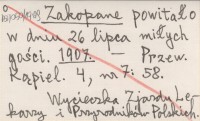 Zakopane powitało
w dniu 26 lipca miłych
gości. 1907. — Przew.
Kąpiel. 4, nr 7: 58.
Wycieczka Zjazdu Le-
karzy i Przyrodników Polskich.